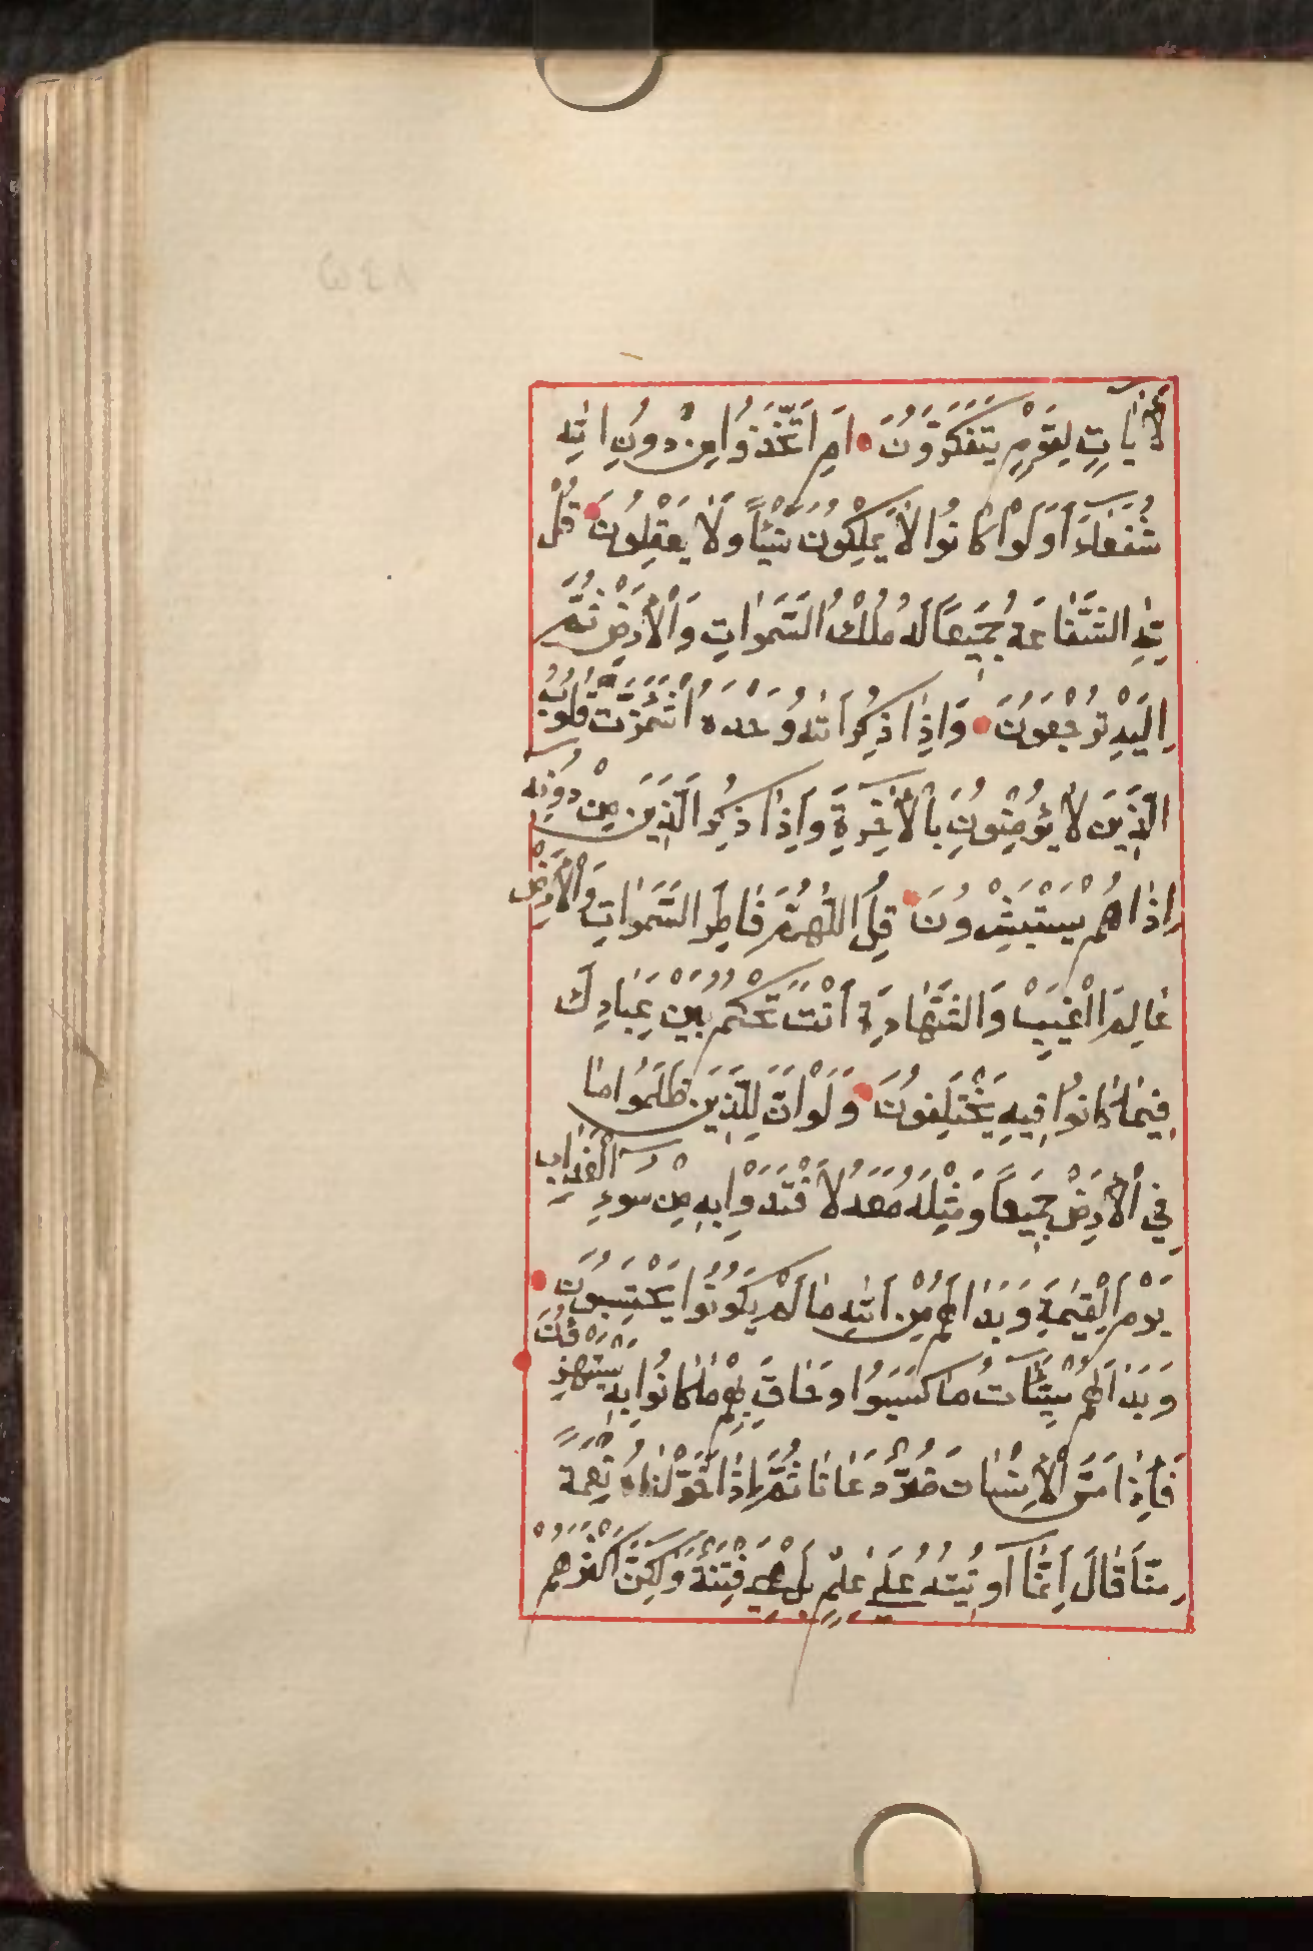 لَأٰيَاتٍ لِقَوْمٍ يَتَفَكَّرُونَ اَمِ اتَّخَذُوا مِنْ دُونِ اللّٰهِ
شُفَعَاءَ اَوَلَوْ كَانُوا لَا يَمْلِكُونَ شَيْئًا وَلَا يَعْقِلُونَ قُلْ
لِلّٰهِ الشَّفَاعَةُ جَمِيعًا لَهُ مُلْكُ السَّمٰوَاتِ وَالْاَرْضِ ثُمَّ
اِلَيْهِ تُرْجَعُونَ وَاِذَا ذُكِرَ اللّٰهُ وَحْدَهُ اشْمَئَزَّتْ قُلُوبُ
الَّذِينَ لَا يُؤْمِنُونَ بِالْاٰخِرَةِ وَاِذَا ذُكِرَ الَّذِينَ مِنْ دُونِهِ
اِذَا هُمْ يَسْتَبْشِرُونَ قُلِ اللّٰهُمَّ فَاطِرَ السَّمٰوَاتِ وَالْاَرْضِ
عَالِمَ الْغَيْبِ وَالشَّهَادَةِ اَنْتَ تَحْكُمُ بَيْنَ عِبَادِكَ
فِيمَا كَانُوا فِيهِ يَخْتَلِفُونَ وَلَوْ اَنَّ لِلَّذِينَ ظَلَمُوا مَا
فِي الْاَرْضِ جَمِيعًا وَمِثْلَهُ مَعَهُ لَافْتَدَوْا بِهِ مِنْ سُوءِ الْعَذَابِ
يَوْمَ الْقِيٰمَةِ وَبَدَا لَهُمْ مِنَ اللّٰهِ مَا لَمْ يَكُونُوا يَحْتَسِبُونَ
وَبَدَا لَهُمْ سَيِّئَاتُ مَا كَسَبُوا وَحَاقَ بِهِمْ مَا كَانُوا بِهِ يَسْتَهْزِؤُنَ
فَاِذَا مَسَّ الْاِنْسَانَ ضُرٌّ دَعَانَا ثُمَّ اِذَا خَوَّلْنَاهُ نِعْمَةً
مِنَّا قَالَ اِنَّمَا اُو۫تِيتُهُ عَلٰى عِلْمٍ بَلْ هِيَ فِتْنَةٌ وَلٰكِنَّ اَكْثَرَهُمْ